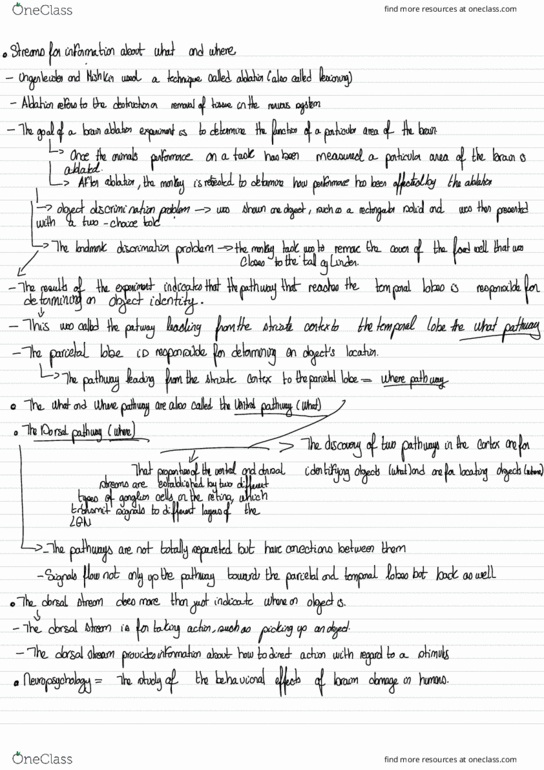 OneClass
find more resources at oneclass.com
• Streams for information about what and where
- Ungerleider and Mishkin used a technique called ablation (also called lesioning)
- Ablation refers to the destruction or removal of tissue in the nervous system
- The goal of a brain ablation experiment is to determine the function of a particular area of the brain
↳ Once the animals performance on a task has been measured a particular area of the brain is
ablated.
↳ After ablation, the monkey is retested to determine how performance has been affected by the ablation
→ object discrimination problem → was shown one object, such as a rectangular solid and was then presented
with a two-choice task
↳ The landmark discrimination problem → the monkey task was to remove the cover of the food well that was
closer to the tall cylinder.
- The results of the experiment indicates that the pathway that reaches the temporal lobes is responsible for
determining an object identity.
- This was called the patway leading from the striate cortex to the temporal lobe the what pathway
- The parcetal lobe is responsible for determining an object's location.
↳ The pathway leading from the striate cortex to the parietal lobe = where pathway
• The what and where pathway are also called the Ventral pathway (what)
• The Dorsal pathway (where)
→ The discovery of two pathways in the cortex are for
identifying objects (what) and are for locating objects (where)
That properties of the ventral and dorsal
streams are established by two different
types of ganglion cells in the retina, which
transmit signals to different layers of the
LGN
→ - The pathways are not totally separated but have conections between them
- Signals flow not only up the pathway towards the parcetal and temporal lobes but back as well
• The dorsal stream does more than just indicate where an object is.
- The dorsal stream is for taking action, such as picking up an object
- The dorsal stream provides information about how to direct action with regard to a stimulus
• Neuropsychology = The study of the behavioral effects of brain damage in humans.
OneClass
find more resources at oneclass.com